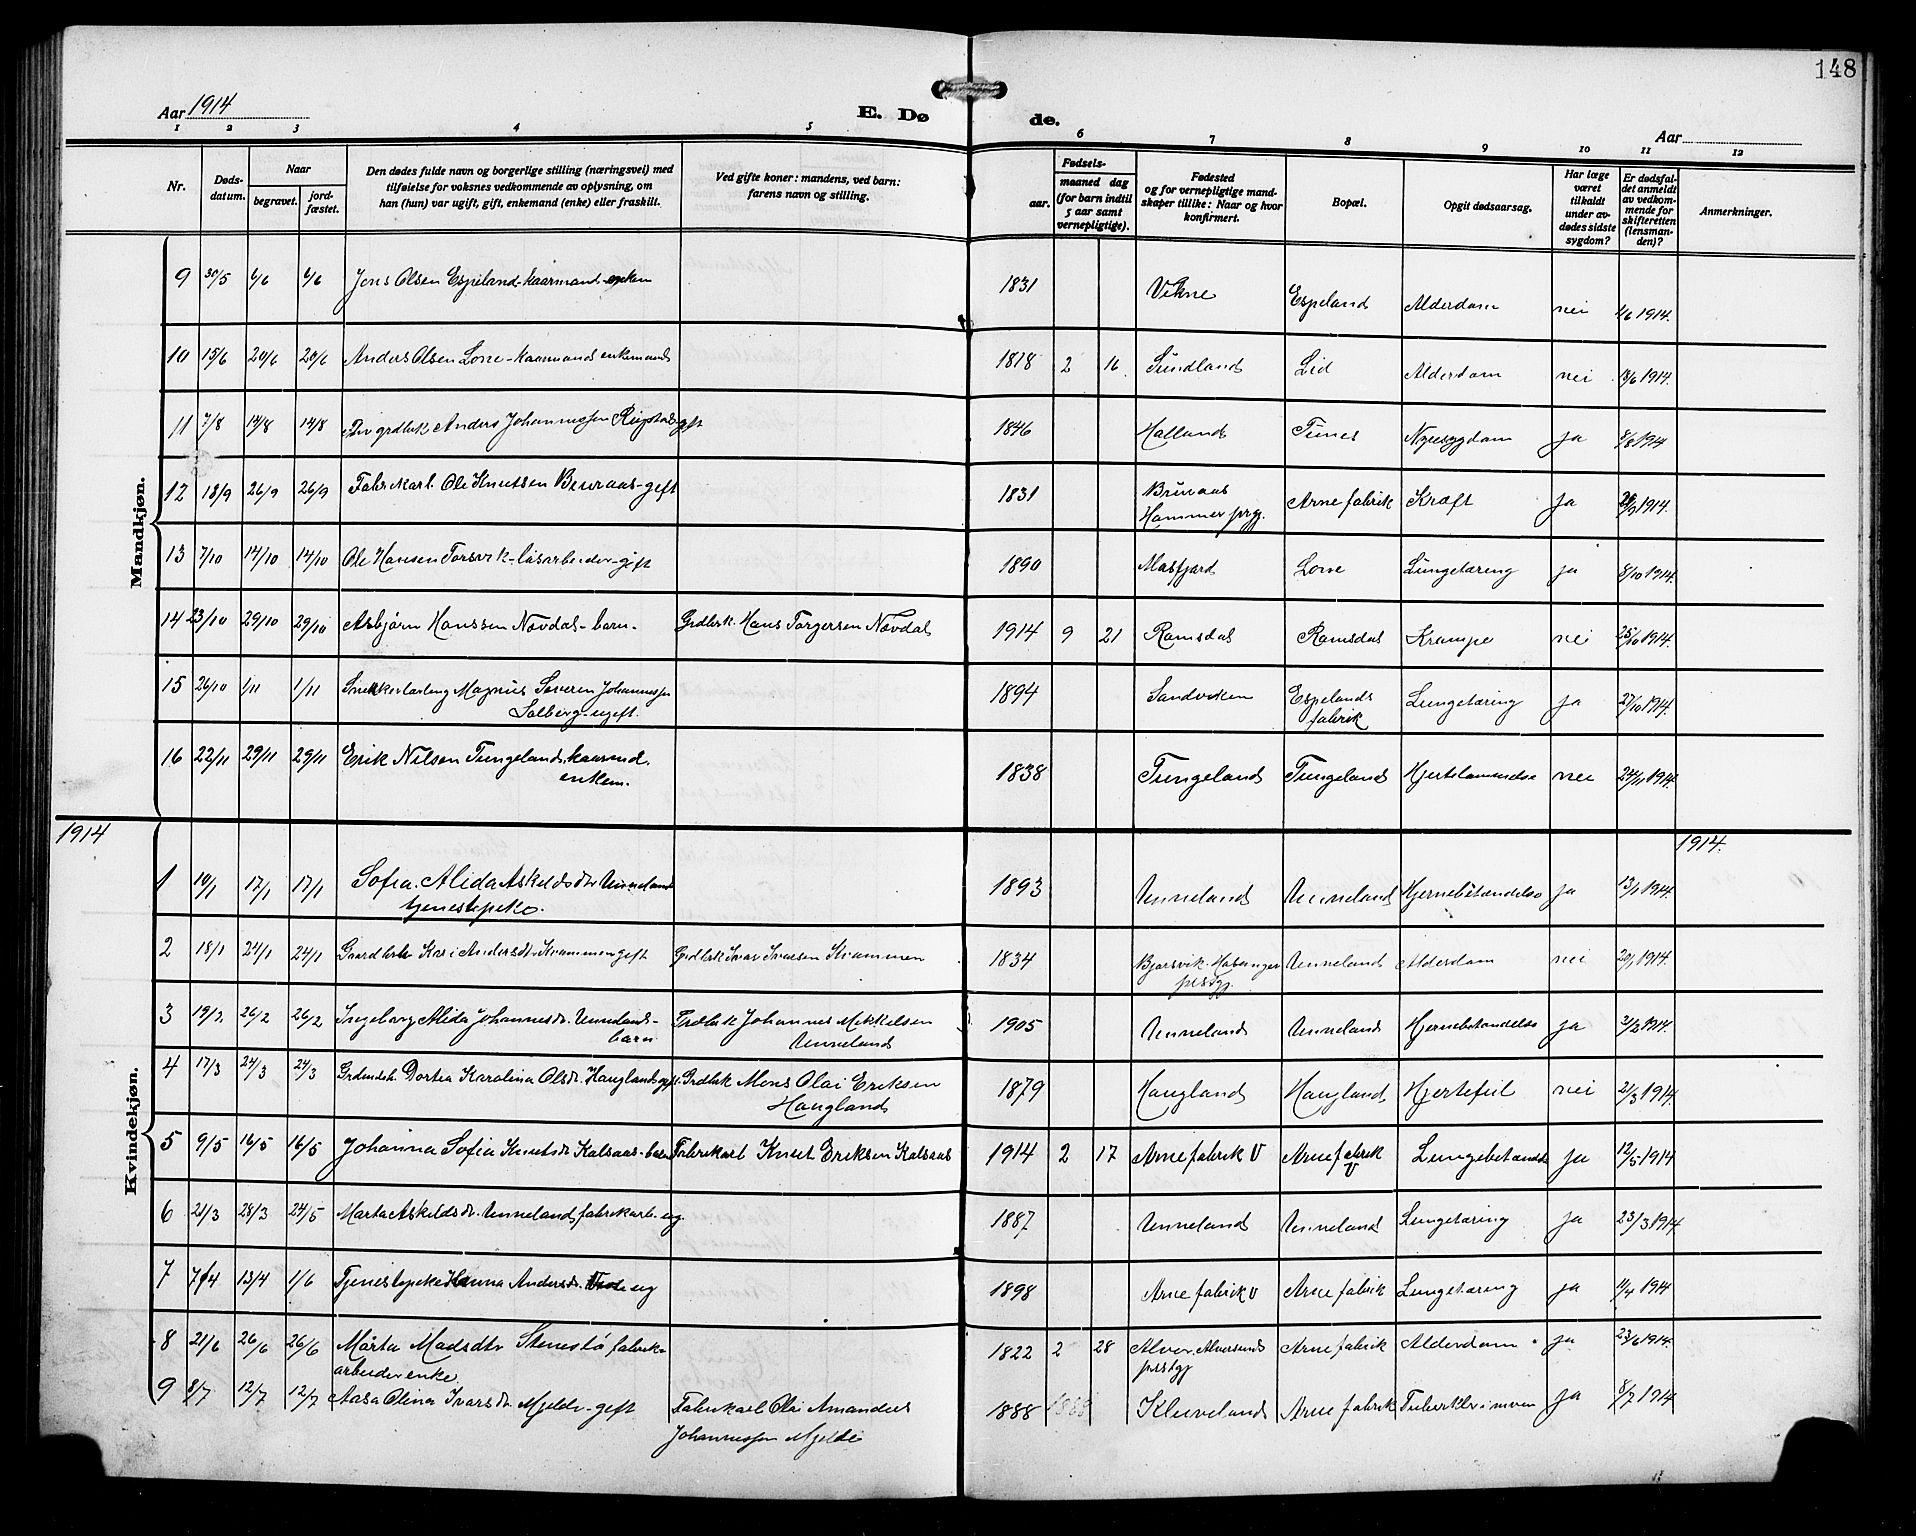 148
Aar 1914
E. Dø de.
Aar
1 2 3 4 5 6 7 8 9 10 11 12
Nr. Døds-datum. Naar begravet. jord-fæstet. Den dødes fulde navn og borgerlige stilling (næringsvei) med tilføielse for voksnes vedkommende av oplysning, om han (hun) var ugift, gift, enkemand (enke) eller fraskilt. Ved gifte koner: mandens, ved barn: farens navn og stilling. Fødsels- aar. maaned dag (for barn indtil 5 aar samt vernepligtige). Fødested og for vernepligtige mand-skaper tillike: Naar og hvor konfirmert. Bopæl. Opgit dødsaarsag. Har læge været tilkaldt under av-dødes sidste sygdom? Er dødsfal-det anmeldt av vedkom-mende for skifteretten (lensman-den)? Anmerkninger.
Mandkjøn.
9 30/5 6/6 6/6 Jens Olsen Espeland - kaarmand - enkem 1831 Vikne Espeland Alderdom nei 4/6 1914.
10 15/6 20/6 20/6 Anders Olsen Lone - kaarmand enkemand 1818 2 16 Sundland Lid Alderdom nei 18/6 1914.
11 7/8 14/8 14/8 grdbrk Anders Johannessen gift 1846 Halland Tunes Nyresygdom ja 8/8 1914
12 18/9 26/9 26/9 Fabrikarb. Ole Knutsen Bruraas - gift 1831 Bruraas Hammer prgj. Arne fabrik Kræft ja 1914.
13 7/10 14/10 14/10 Ole Hansen Torsvik - løsarbeider - gift 1890 Masfjord Lone Lungetæring ja 8/10 1914.
14 23/10 29/10 29/10 Asbjørn Hanssen Novdal - barn - Grdbrk. Hans Torgersen Novdal 1914 9 21 Ramsdal Ramsdal Krampe nei 25/10 1914.
15 26/10 1/11 1/11 Snekkerlærling Magnus Severin Johannessen
Solberg - ugift. 1894 Sandviken Espelands fabrik Lungetæring ja 27/10 1914.
16 22/11 29/11 29/11 Erik Nilsen Tungeland, kaarmd.
enkem. 1838 Tungeland Tungeland Hjertelammelse nei 24/11 1914.
1914 1914.
Kvindekjøn.
1 10/1 17/1 17/1 Sofia Alida Askeldsdtr Unneland
tjenestepike. 1893 Unneland Unneland Hjernebetændelse ja 13/1 1914.
2 18/1 24/1 24/1 Kari Andersdtr. Kvammen gift Grdbrk Ivar Ivarsen Kvammen 1834 Bjørsvik Hosanger prestgj. Unneland Alderdom nei 20/1 1914.
3 19/2 26/2 26/2 Ingeborg Alida Johannesdr. Unneland -
barn Grdbrk Johannes Mikkelsen
Unneland 1905 Unneland Unneland Hjernebetændelse ja 1914.
4 17/3 24/3 24/3 Dortea Karolina Olsdr. Haugland gift. Grdbrk Mons Olai Eriksen
Haugland 1879 Haugland Haugland Hjertefeil nei 21/3 1914.
5 9/5 16/5 16/5 Johanna Sofia Knutsdr Kalsaas - barn Fabrikarb Knut Eriksen Kalsaas 1914 2 17 Arne fabrik V Arne fabrik V Lungebetændelse ja 12/5 1914
6 21/3 28/3 24/5 Marta Askeldsdr. Unneland, fabrikarb. ug. 1887 Unneland Unneland Lungetæring ja 23/3 1914
7 7/4 13/4 1/6 Tjenestepike Hanna Andersdr. ug 1898 Arne fabrik V Arne fabrik Lungetæring ja 11/4 1914
8 21/6 26/6 26/6 Märta Madsdtr Stenestø fabrik-
arbeider enke. 1822 2 28 Alver, Alversund prestgj Arne fabrik Alderdom ja 23/6 1914.
9 8/7 12/7 12/7 Aasa Olina Ivarsdr. Mjelde - gift Fabrikarb Olai Amandus
Johannessen Mjelde 1888 1888 Kleiveland Arne fabrik ja 8/7 1914